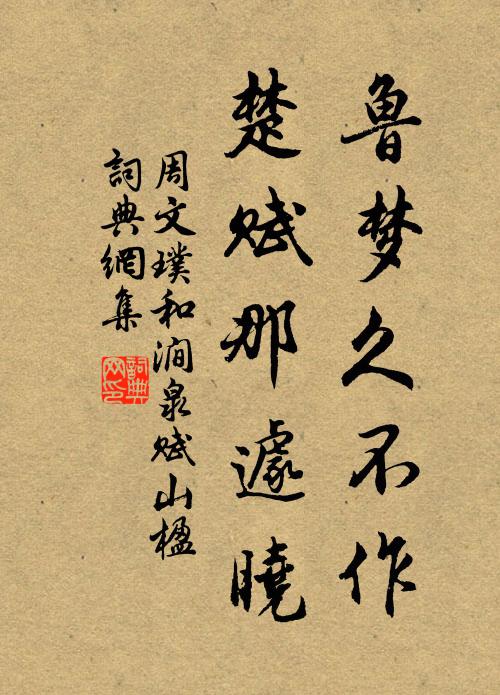 鲁梦久不作
楚赋那遽曉
周文璞和澗泉赋山楹
詞典網集
詞典
网印